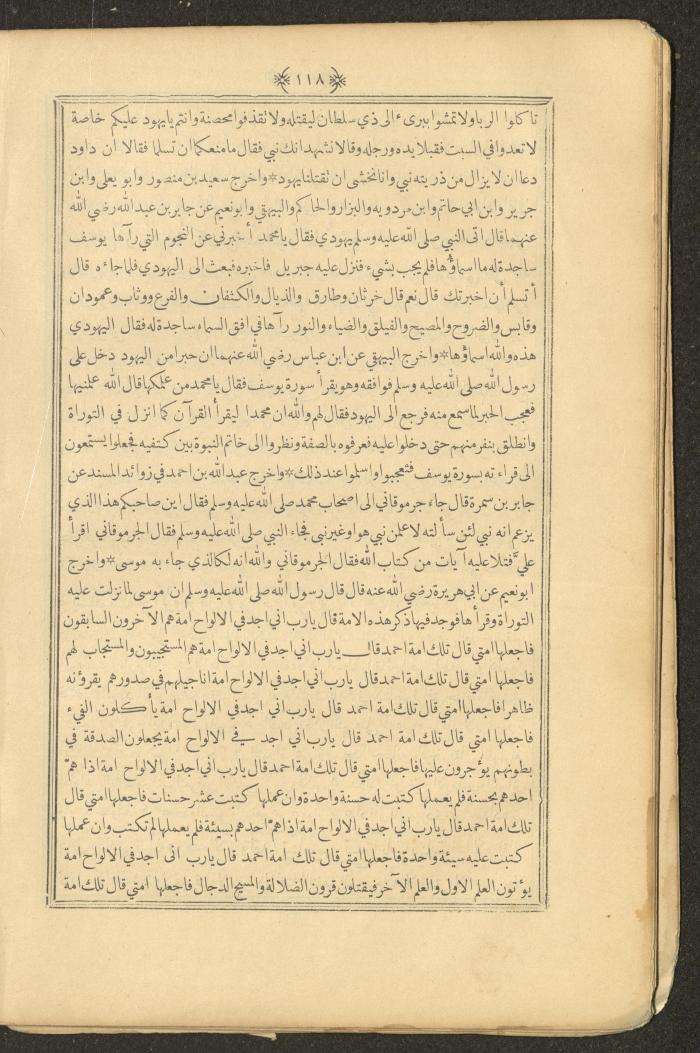 ﴿ ١١٨ ﴾
تا كلوا الربا ولا تمشوا ببرىء الى ذي سلطان ليقتله ولا نقذفوا محصنة وانتم يايهود عليكم خاصة
لا تعدوا في السبت فقبلا يده ورجله وقالا نشهد انك نبي فقال ما منعكما ان تسلما فقالا ان داود
دعا ان لا يزال من ذريته نبي وانا نخشى ان نقتلنا يهود * واخرج سعيد بن منصور وابو يعلى وابن
جرير وابن ابي حاتم وابن مردويه والبزار والحاكم والبيهقي وابو نعيم عن جابر بن عبد الله رضي الله
عنهما قال اتى النبي صلى الله عليه وسلم يهودي فقال يا محمد أخبرني عن النجوم التي رآها يوسف
ساجدة له ما اسماؤها فلم يجب بشيء فنزل عليه جبريل فاخبره فبعث الى اليهودي فلما جاءه قال
أتسلم أن اخبرتك قال نعم قال خرثان وطارق والذيال والكتفان والفرع ووثاب وعمودان
وقابس والضروح والمصبح والفيلق والضياء والنور رآها في افق السماء ساجدة له فقال اليهودي
هذه والله اسماؤها * واخرج البيهقي عن ابن عباس رضي الله عنهما ان حبرا من اليهود دخل على
رسول الله صلى الله عليه وسلم فوافقه وهو يقرأ سورة يوسف فقال يا محمد من علمكها قال الله علمنيها
فعجب الحبر لما سمع منه فرجع الى اليهود فقال لهم والله ان محمدا ليقرأ القرآن كما انزل في التوراة
وانطلق بنفر منهم حتى دخلوا عليه فعرفوه بالصفة ونظروا الى خاتم النبوة بين كتفيه فجعلوا يستمعون
الى قراءته بسورة يوسف فتعجبوا واسلموا عند ذلك * واخرج عبد الله بن احمد في زوائد المسند عن
جابر بن سمرة قال جاء جرموقاني الى اصحاب محمد صلى الله عليه وسلم فقال اين صاحبكم هذا الذي
يزعم انه نبي لئن سألته لاعلمن نبي هو او غير نبي فجاء النبي صلى الله عليه وسلم فقال الجرموقاني اقرأ
عليّ فتلا عليه آيات من كتاب الله فقال الجرموقاني والله انه لكالذي جاء به موسى * واخرج
ابو نعيم عن ابي هريرة رضي الله عنه قال قال رسول الله صلى الله عليه وسلم ان موسى لما نزلت عليه
التوراة وقرأها فوجد فيها ذكر هذه الامة قال يارب اني اجد في الالواح امة هم الآخرون السابقون
فاجعلها امتي قال تلك امة احمد قال يارب اني اجد في الالواح امة هم المستجيبون والمستجاب لهم
فاجعلها امتي قال تلك امة احمد قال يارب اني اجد في الالواح امة اناجيلهم في صدورهم يقرؤنه
ظاهرا فاجعلها امتي قال تلك امة احمد قال يارب اني اجد في الالواح امة يأكلون الفيء
فاجعلها امتي قال تلك امة احمد قال يارب اني اجد في الالواح امة يجعلون الصدقة في
بطونهم يؤجرون عليها فاجعلها امتي قال تلك امة احمد قال يارب اني اجد في الالواح امة اذا همّ
احدهم بحسنة فلم يعملها كتبت له حسنة واحدة وان عملها كتبت عشر حسنات فاجعلها امتي قال
تلك امة احمد قال يارب اني اجد في الالواح امة اذا همّ احدهم بسيئة فلم يعملها لم تكتب وان عملها
كتبت عليه سيئة واحدة فاجعلها امتي قال تلك امة احمد قال يارب انى اجد في الالواح امة
يؤتون العلم الاول والعلم الآخر فيقتلون قرون الضلالة والمسيح الدجال فاجعلها امتي قال تلك امة